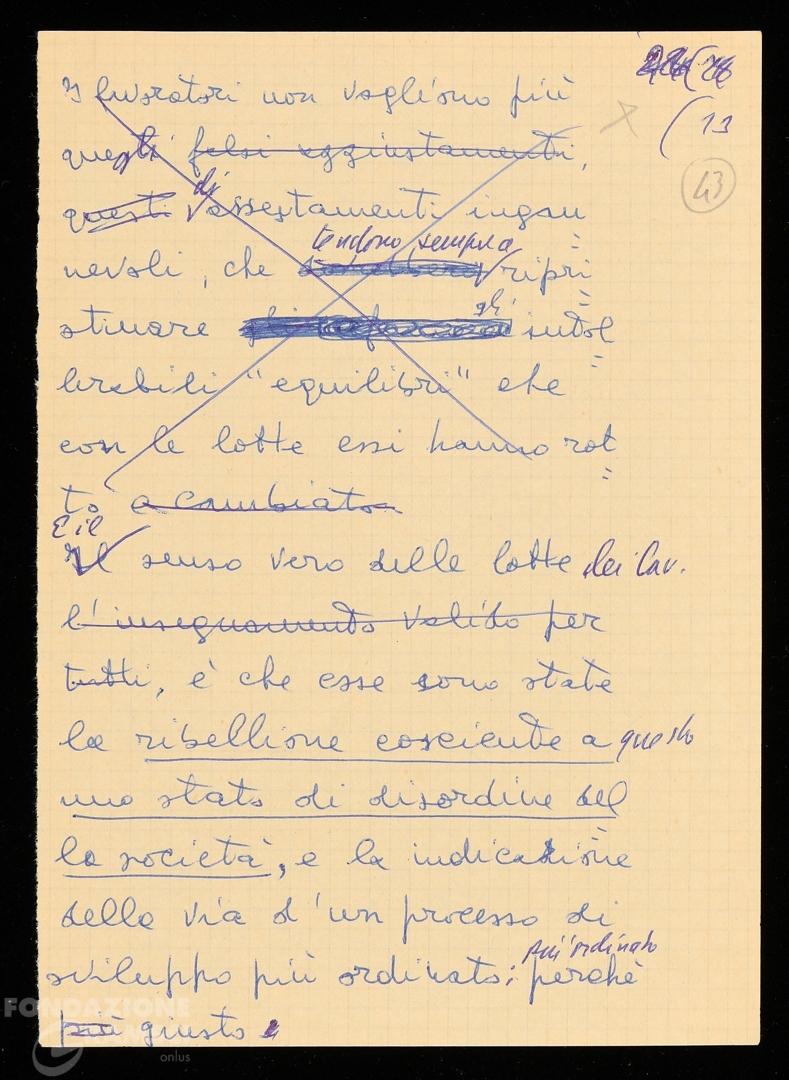 13
43
I lavoratori non vogliono più
quegli falsi aggiustamenti,
questi di assestamenti ingan
tendono sempre
nevoli, che ripri
gli
stinare intol
lerabili "equilibri" che
con le lotte essi hanno rot
to e cambiato.
E il
Il senso vero delle lotte dei lav.
l'insegnamento valido per
tutti, è che esse sono state
la ribellione cosciente a questo
uno stato di disordine del
la società, e la indicazione
della via d'un processo di
più ordinato
sviluppo più ordinato; perchè
più giusto
FONDAZIONE
onlus